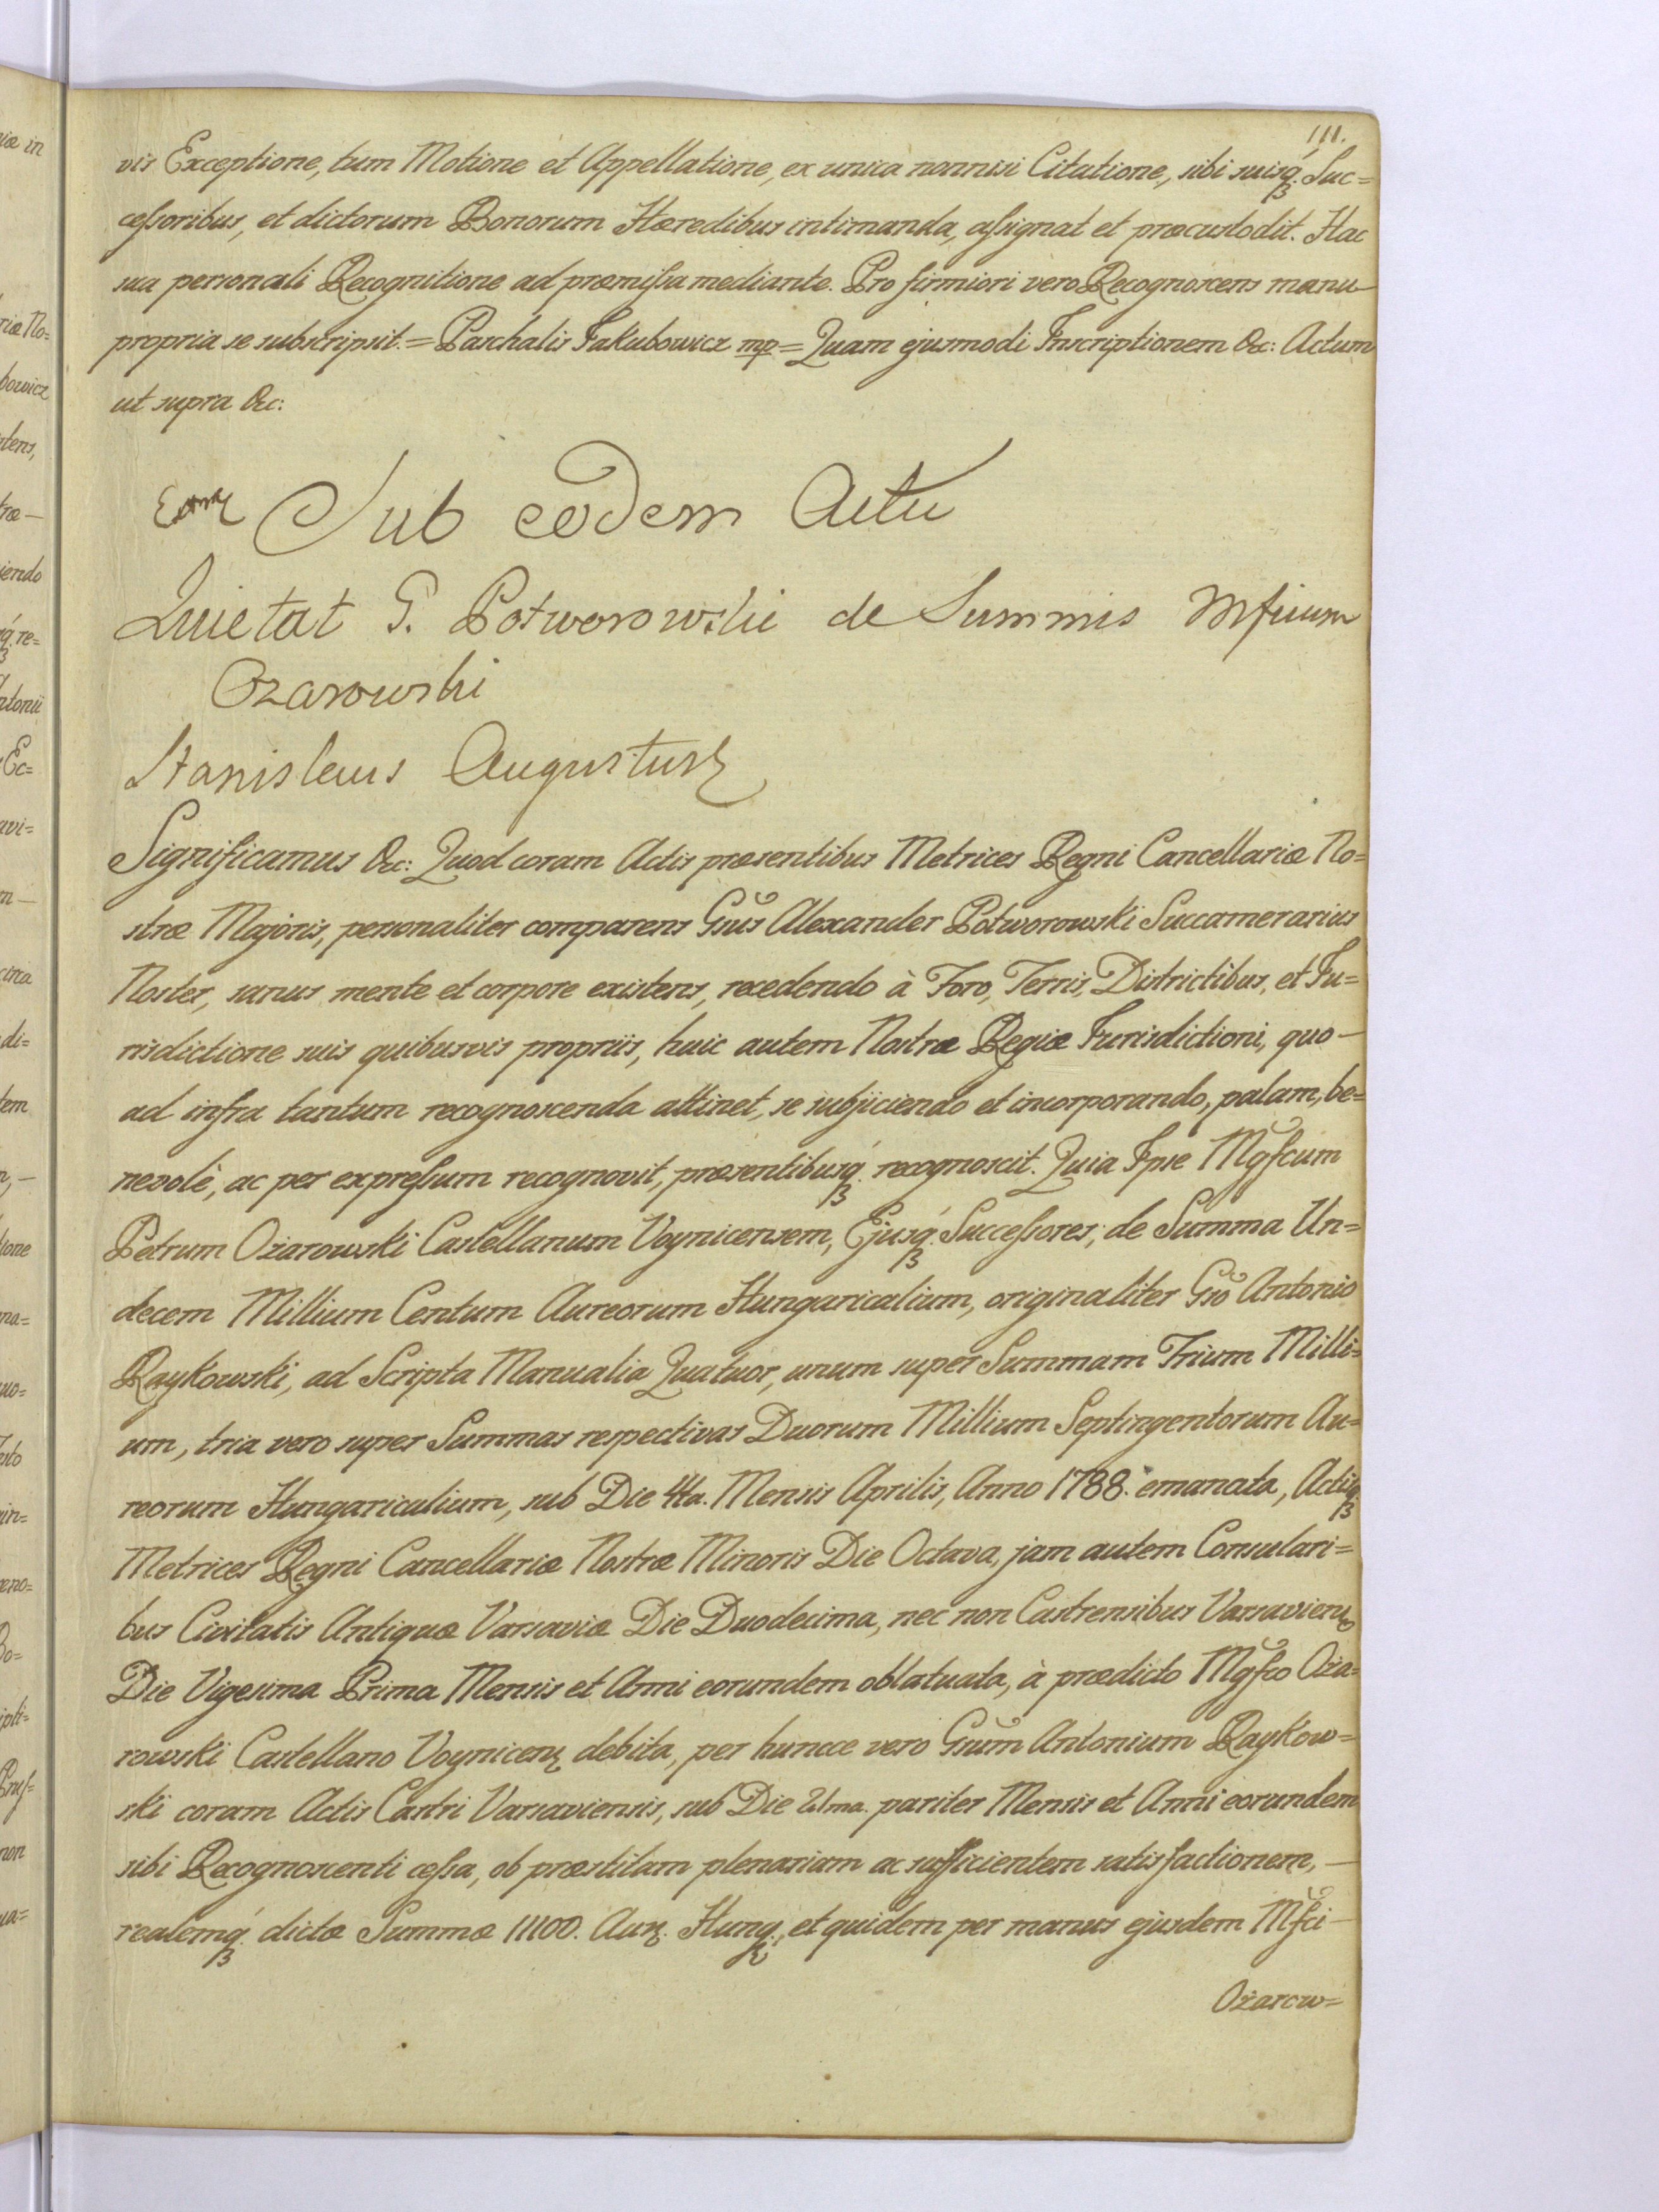 111.
vis Exceptione, tum Motione et Appellatione, ex unica nonnisi Citatione, sibi suisq́ꝫ Suc=
ceſsoribus, et dictorum Bonorum Hæredibus intimanda, aſsignat et præcustodit. Hac
sua personali Recognitione ad præmiſsa mediante. Pro firmiori vero Recognoscens manu
propria se subscripsit. = Paschalis Jakubowicz mp = Quam ejusmodi Inscriptionem &c: Actum
ut supra &c:
Sub eodem Actu
Quietat G. Potworowski de Summis
Ozarowski
Stanislaus Augustus
Significamus &c: Quod coram Actis præsentibus Metrices Regni Cancellariæ No=
stræ Majoris, personaliter comparens Gsus Alexander Potworowski Succamerarius
Noster, sanus mente et corpore existens, recedendo à Foro, Terris, Districtibus, et Ju=
risdictione suis quibusvis propriis, huic autem Nostræ Regiæ Jurisdictioni, quo-
ad infra tantum recognoscenda attinet, se subjiciendo et incorporando, palam, be=
nevolè, ac per expreſsum recognovit, præsentibusq́ꝫ recognoscit. Quia Ipse Mgfcum
Petrum Ożarowski Castellanum Voynicensem, Ejusq́ꝫ Succeſsores, de Summa Un=
decem Millium Centum Aureorum Hungaricalium, originaliter Gso Antonio
Raykowski, ad Scripta Manualia Quatuor, unum super Summam Trium Milli=
um, tria vero super Summas respectivas Duorum Millium Septingentorum Au=
reorum Hungaricalium, sub Die 4ta. Mensis Aprilis, Anno 1788. emanata, Actisqꝫ
Metrices Regni Cancellariæ Nostræ Minoris Die Octava, jam autem Consulari=
bus Civitatis Antiquæ Varsaviæ Die Duodecima, nec non Castrensibus Varsavien
Die Vigesima Prima Mensis et Anni eorundem oblatuata, à prædicto Mgfco Oża=
rowski Castellano Voynicen debita, per huncce vero Gsum Antonium Raykow=
ski coram Actis Castri Varsaviensis, sub Die 21ma. pariter Mensis et Anni eorundem
sibi Recognoscenti ceſsa, ob præstitam plenariam ac sufficientem satisfactionem, —
realemq́ꝫ dictæ Summæ 11100. Aur. Hung., et quidem per manus ejusdem Mfci —
Ożarow=